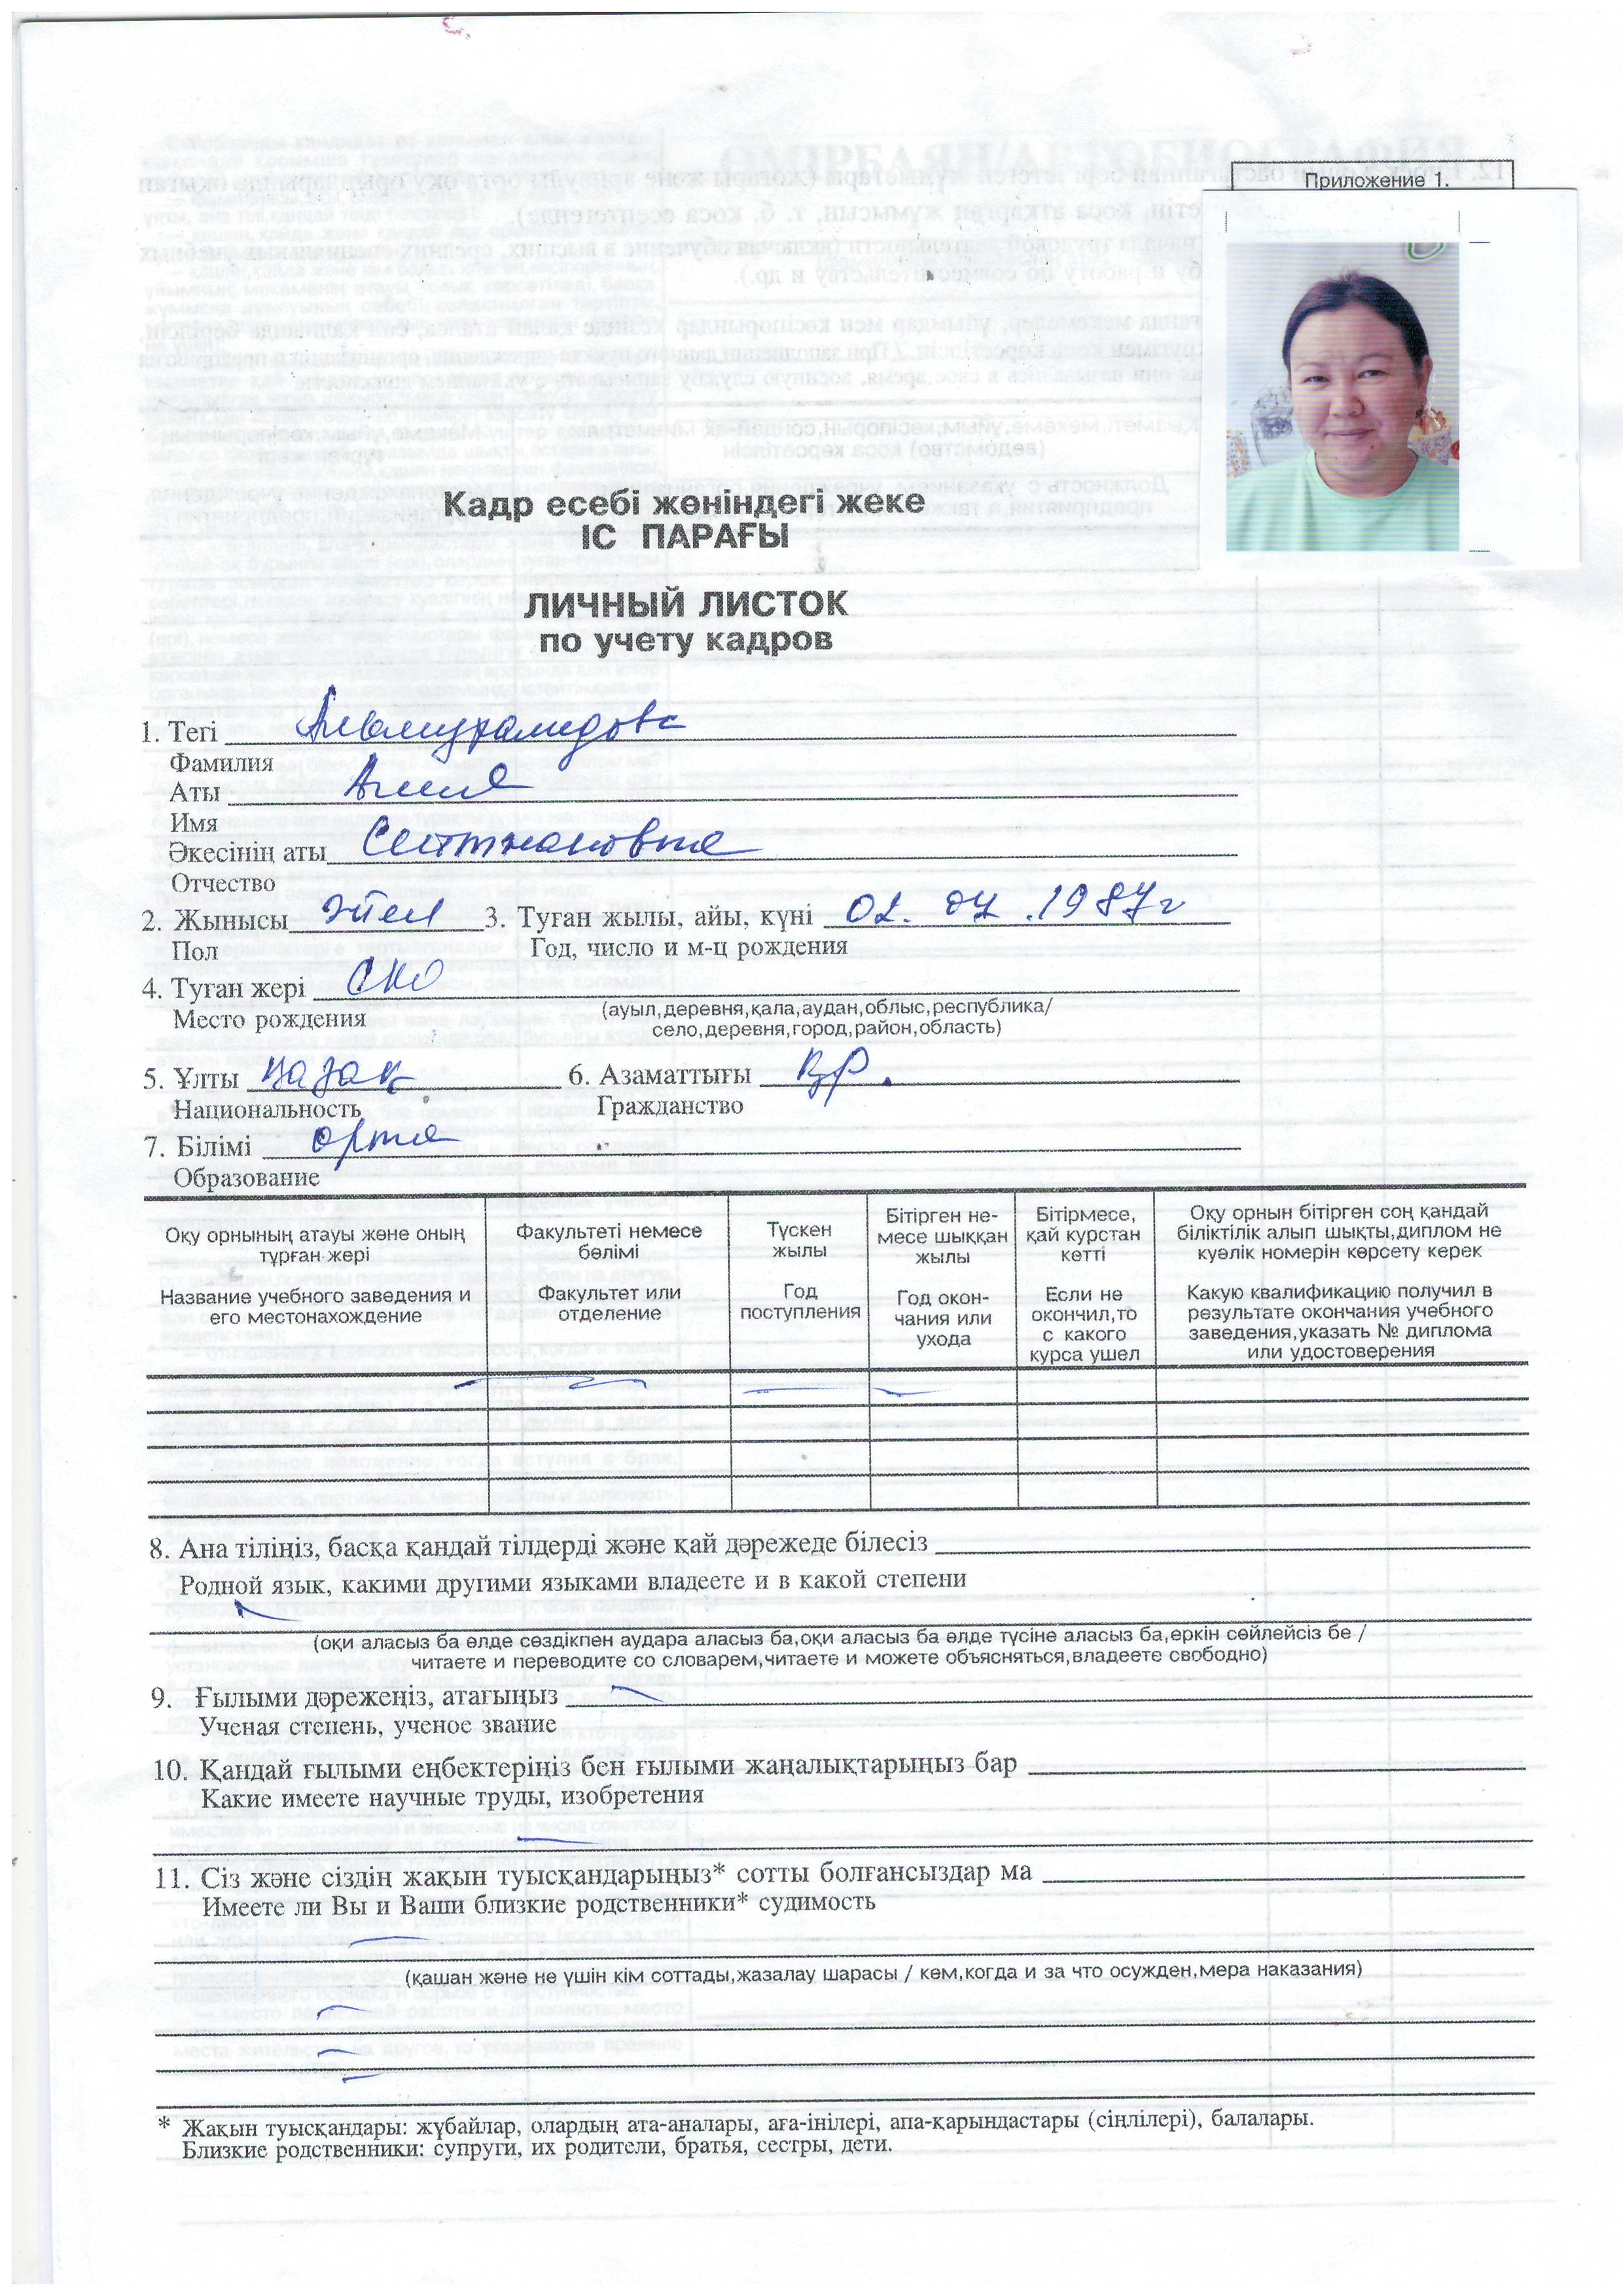 Приложение 1.
Кадр есебі жөніндегі жеке
ІС ПАРАҒЫ
ЛИЧНЫЙ ЛИСТОК
по учету кадров
1. Тегі
Фамилия
Аты
Имя
Әкесінің аты
Отчество
2. Жынысы әйел 3. Туған жылы, айы, күні 02. 07 .1987г
Пол Год, число и м-ц рождения
4. Туған жері СКО
Место рождения (ауыл,деревня,қала,аудан,облыс,республика/
село,деревня,город,район,область)
5. Ұлты қазақ 6. Азаматтығы ҚР.
Национальность Гражданство
7. Білімі орта
Образование
Оқу орнының атауы және оның тұрған жері
Название учебного заведения и его местонахождение
Факультеті немесе бөлімі
Факультет или отделение
Түскен жылы
Год поступления
Бітірген не-месе шыққан жылы
Год окон-чания или ухода
Бітірмесе, қай курстан кетті
Если не окончил,то с какого курса ушел
Оқу орнын бітірген соң қандай біліктілік алып шықты,диплом не куәлік номерін көрсету керек
Какую квалификацию получил в результате окончания учебного заведения,указать № диплома или удостоверения
8. Ана тіліңіз, басқа қандай тілдерді және қай дәрежеде білесіз
Родной язык, какими другими языками владеете и в какой степени
(оқи аласыз ба әлде сөздікпен аудара аласыз ба,оқи аласыз ба әлде түсіне аласыз ба,еркін сөйлейсіз бе /
читаете и переводите со словарем,читаете и можете объясняться,владеете свободно)
9. Ғылыми дәрежеңіз, атағыңыз
Ученая степень, ученое звание
10. Қандай ғылыми еңбектеріңіз бен ғылыми жаңалықтарыңыз бар
Какие имеете научные труды, изобретения
11. Сіз және сіздің жақын туысқандарыңыз* сотты болғансыздар ма
Имеете ли Вы и Ваши близкие родственники* судимость
(қашан және не үшін кім соттады,жазалау шарасы / кем,когда и за что осужден,мера наказания)
* Жақын туысқандары: жұбайлар, олардың ата-аналары, аға-інілері, апа-қарындастары (сіңлілері), балалары.
Близкие родственники: супруги, их родители, братья, сестры, дети.